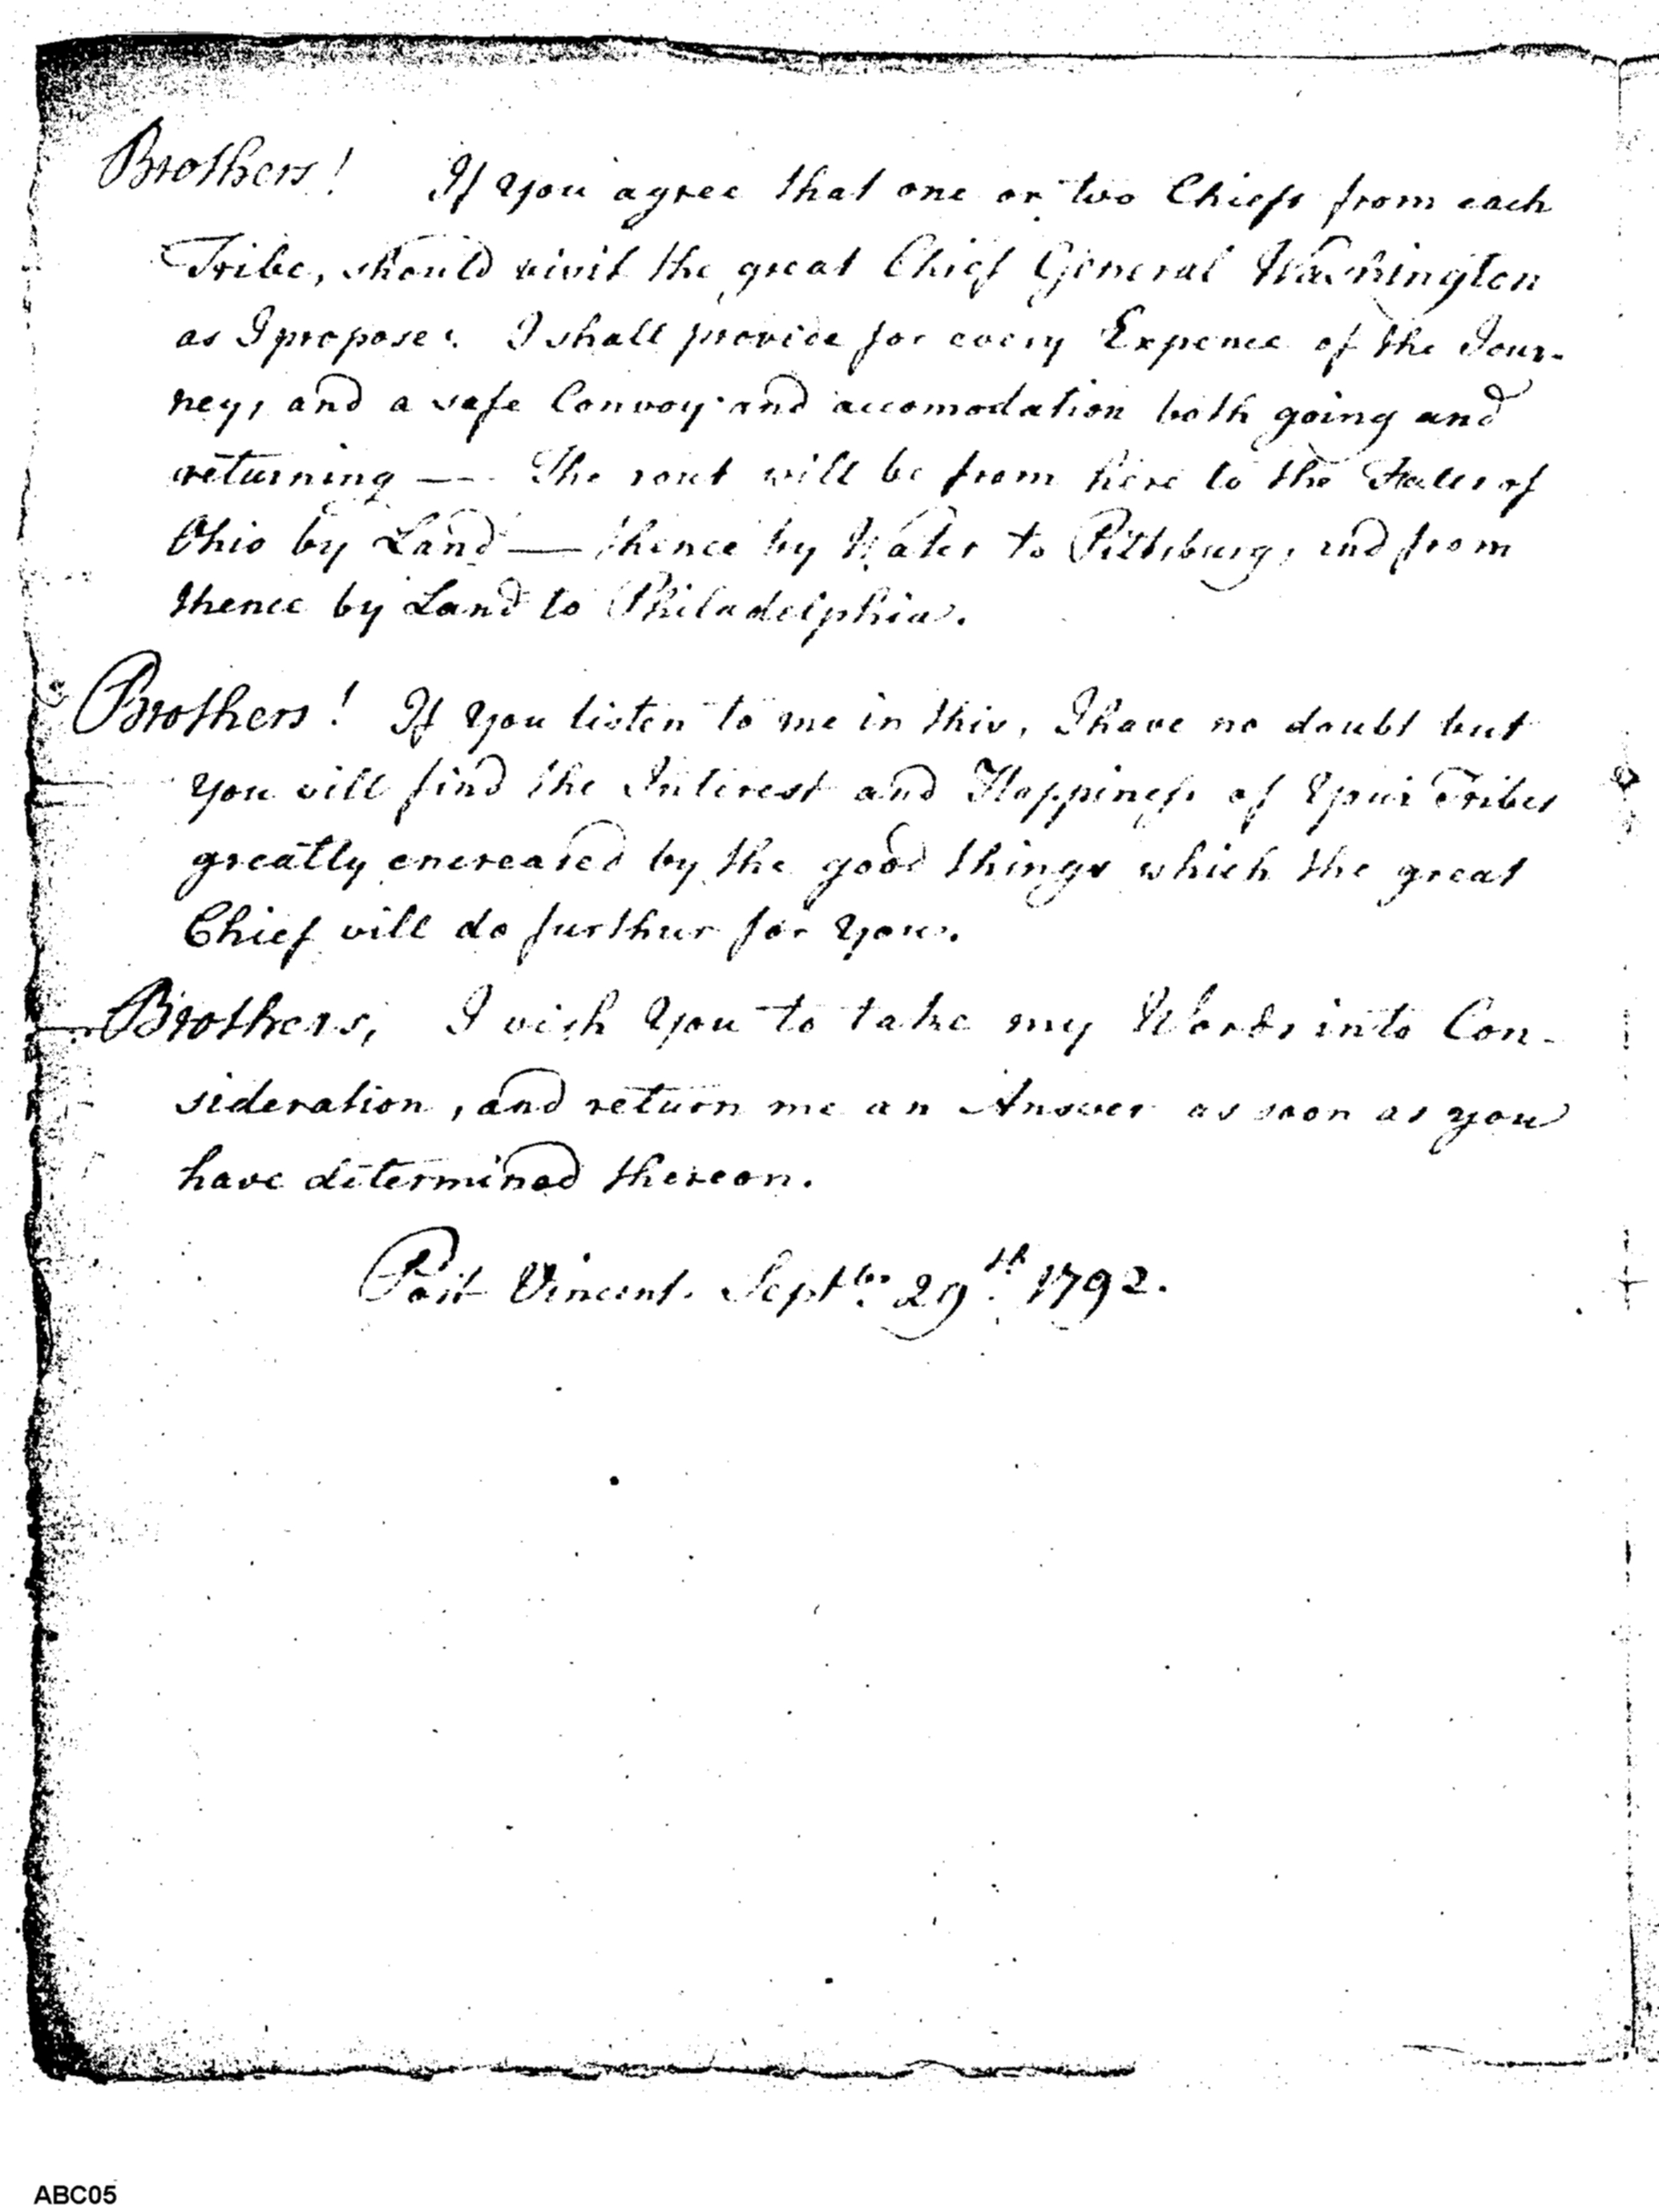 Brothers! If You agree that one or two Chiefs from each
Tribe, should visit the great Chief General Washington
as I propose: I shall provide for every Expence of the Jour-
ney, and a safe Convoy and accomodation both going and
returning — The rout will be from here to the Falls of
Ohio by Land — thence by Water to Pittsburg, and from
thence by Land to Philadelphia.
Brothers! If You listen to me in this, I have no doubt but
You will find the Interest and Happiness of Your Tribes
greatly encreased by the good things which the great
Chief will do furthur for You.
Brothers, I wish You to take my Words into Con-
sideration, and return me an Answer as soon as you
have determined thereon.
Post Vincent. Septbr. 29th. 1792.
ABC05